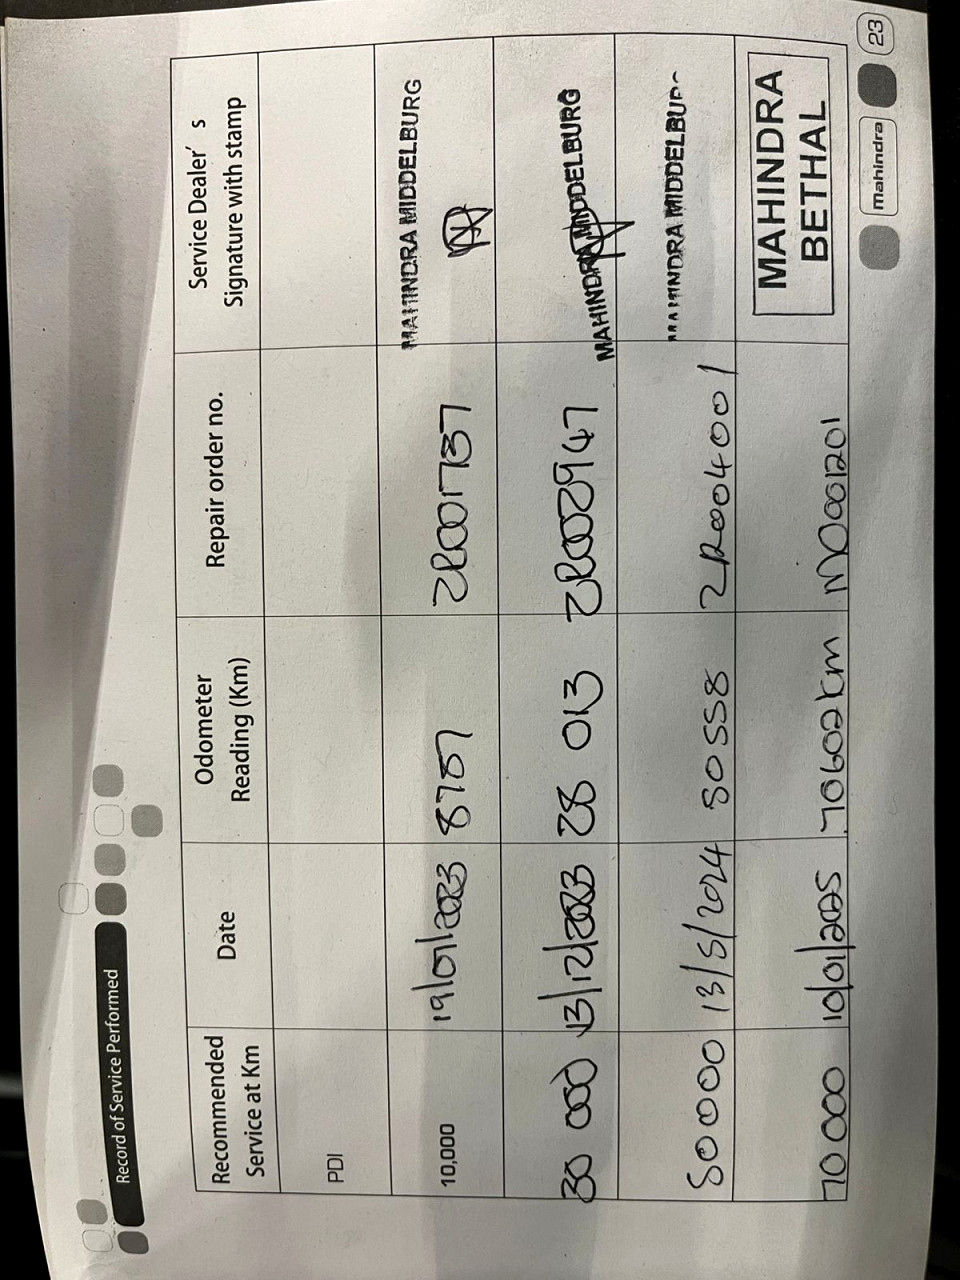 Record of Service Performed
Recommended Service at Km | Date | Odometer Reading (Km) | Repair order no. | Service Dealer's Signature with stamp
PDI
10,000 | 19/07/2023 | 8787 | 2R001737 | MAHINDRA MIDDELBURG
30 000 | 13/12/2023 | 28 013 | 2R002947 | MAHINDRA MIDDELBURG
50000 | 13/5/2024 | 50558 | 2R004001 | MAHINDRA MIDDELBURG
70 000 | 10/01/2025 | 70602km | M0001201 | MAHINDRA BETHAL
mahindra
23